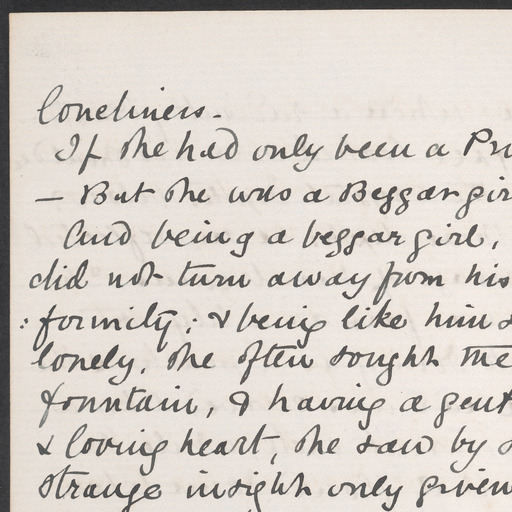 loneliness.
If she had only been a
— But she was a Beggar
And being a beggar girl,
did not turn away from his
: formity; & being like him
lonely, she often sought the
fountain, & having a
& loving heart, she saw by
strange insight only given